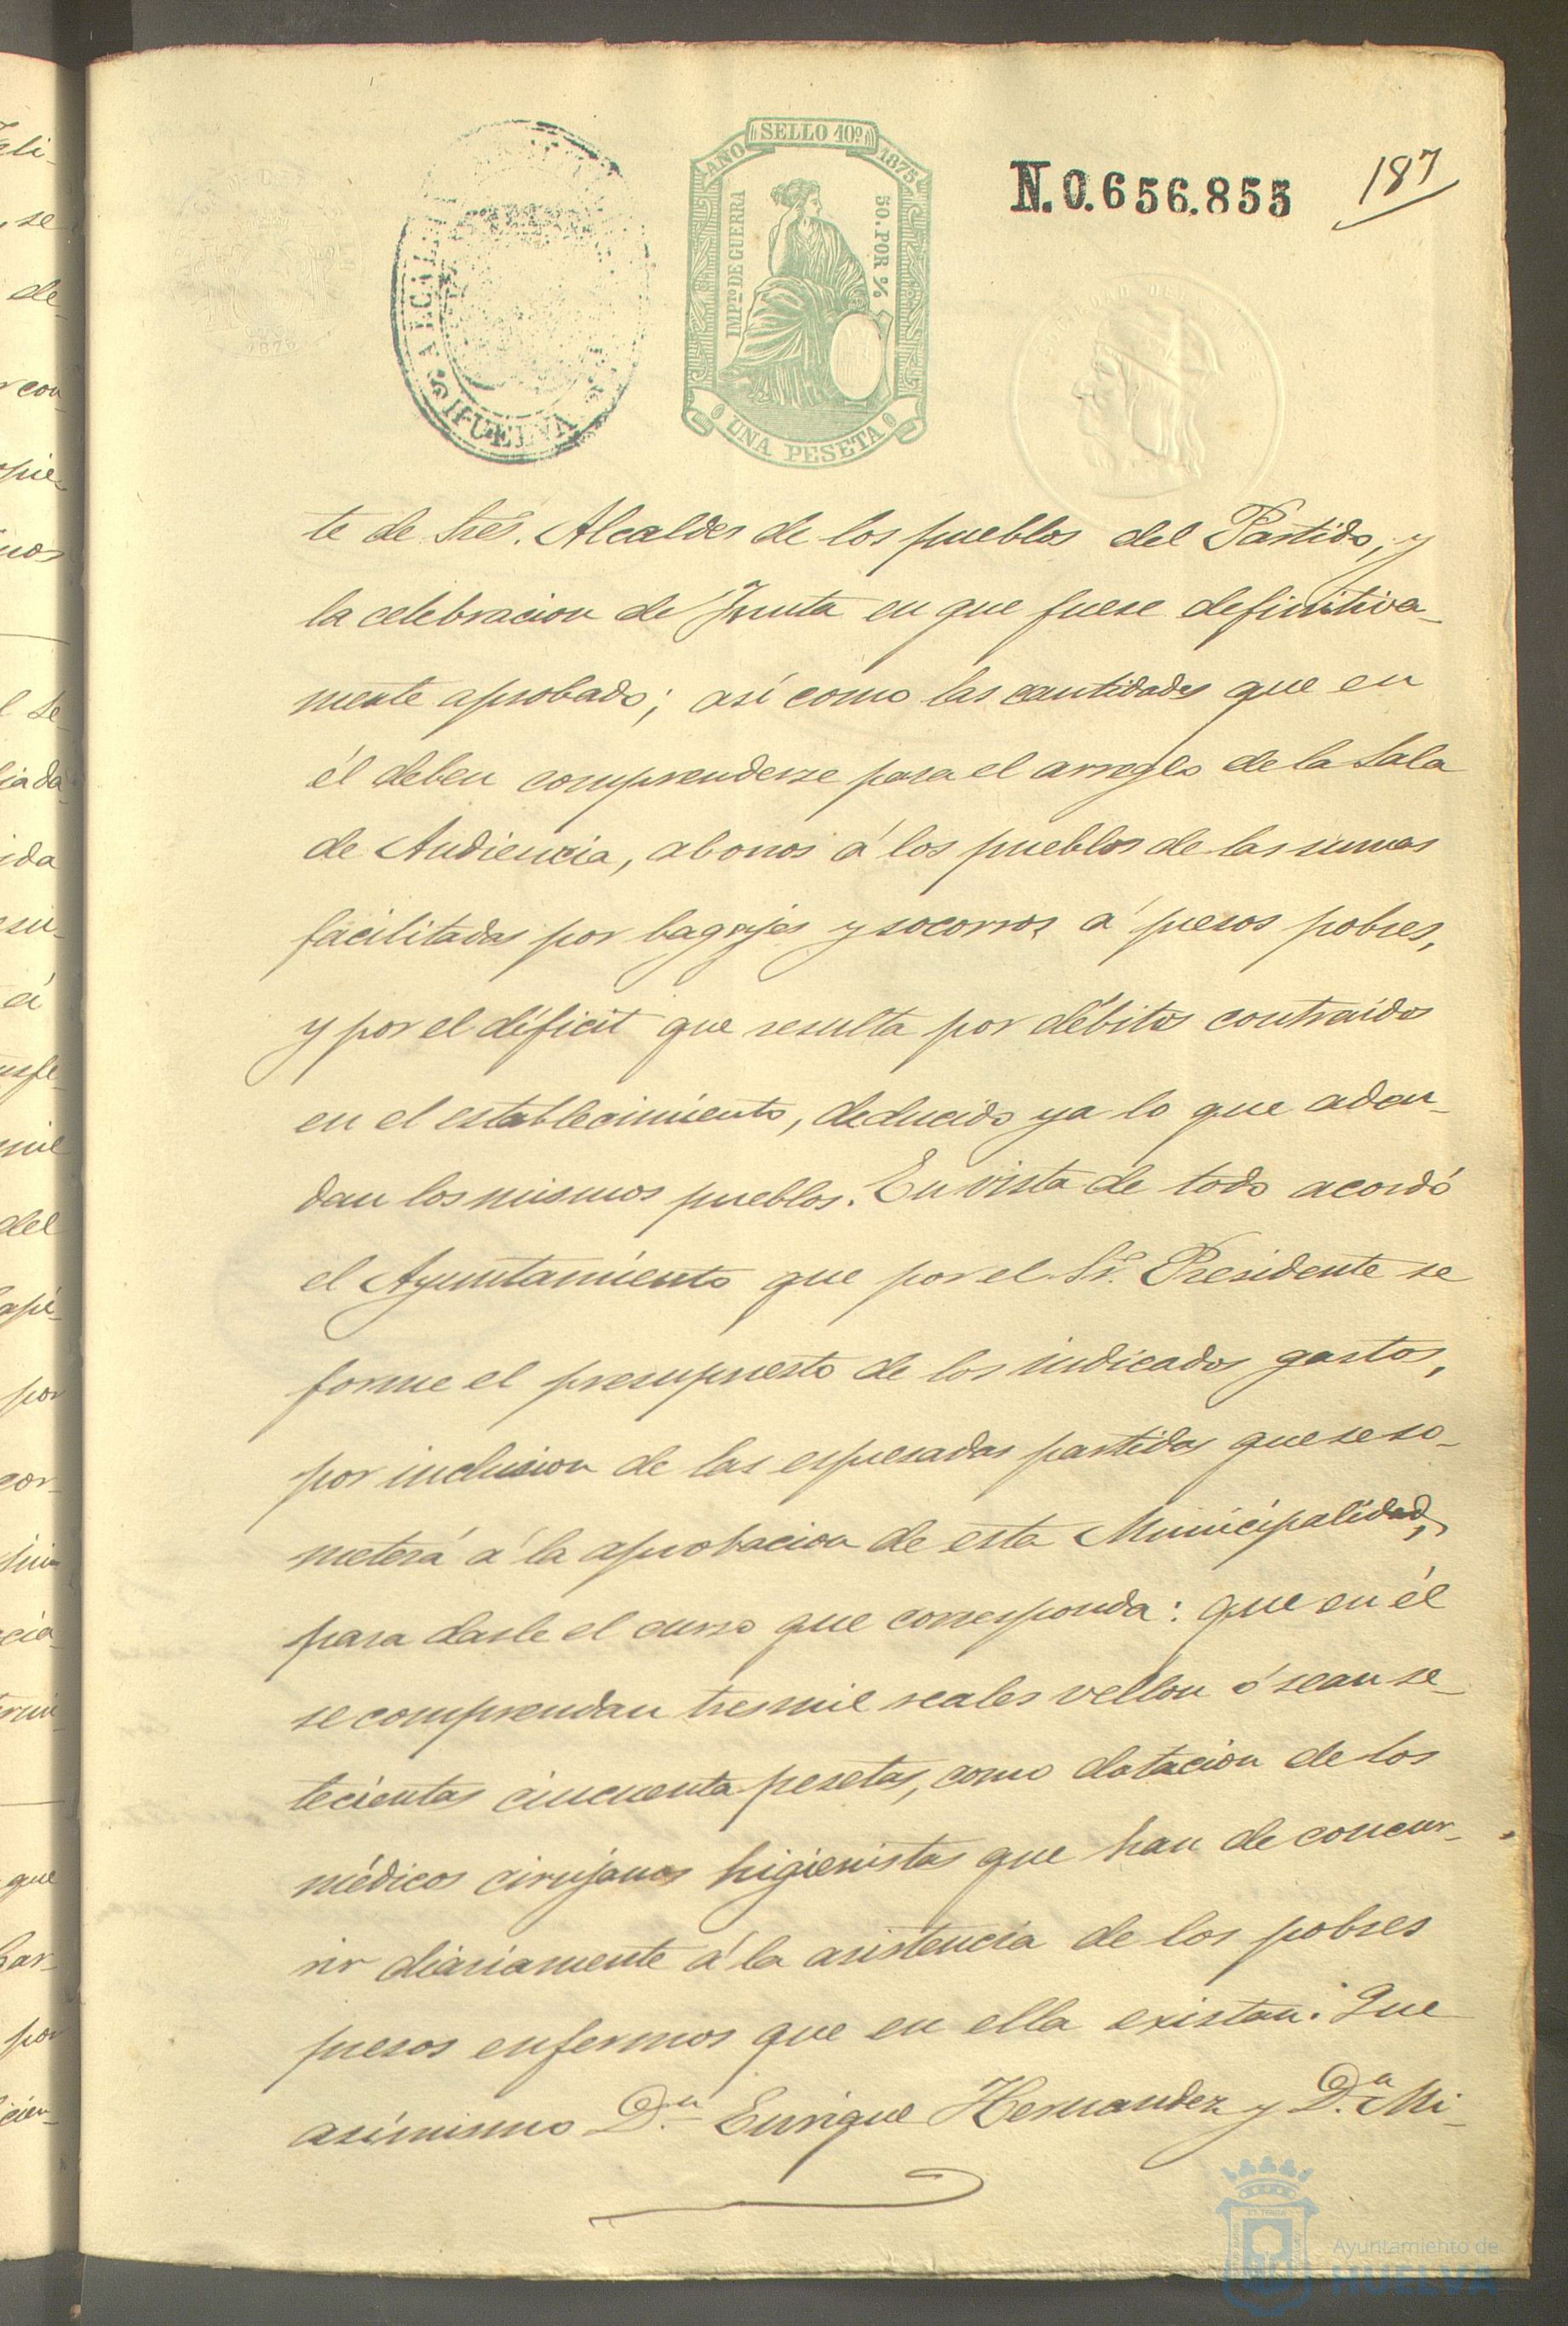 SELLO 10º
AÑO 1875
IMPTO DE GUERRA
50. POR %
UNA PESETA
ALCAL
HUELVA
N.0.656.855
187
te de Sres. Alcaldes de los pueblos del Partido, y
la celebracion de Junta en que fuese definitiva-
mente aprobado; así como las cantidades que en
él deben comprenderse para el arreglo de la Sala
de Audiencia, abonos á los pueblos de las sumas
facilitadas por bagajes y socorros á presos pobres,
y por el déficit que resulta por débitos contraídos
en el establecimiento, deducido ya lo que adeu-
dan los mismos pueblos. En vista de todo acordó
el Ayuntamiento que por el Sr. Presidente se
forme el presupuesto de los indicados gastos,
por inclusion de las espresadas partidas que se so-
meterá á la aprobacion de esta Municipalidad,
para darle el curso que corresponda: que en él
se comprendan tres mil reales vellon ó sean se-
tecientas cincuenta pesetas, como dotacion de los
médicos cirujanos higienistas que han de concur-
rir diariamente á la asistencia de los pobres
presos enfermos que en ella existan. Que
asimismo Dn. Enrique Hernandez y Dn. Mi-
Ayuntamiento de
HUELVA